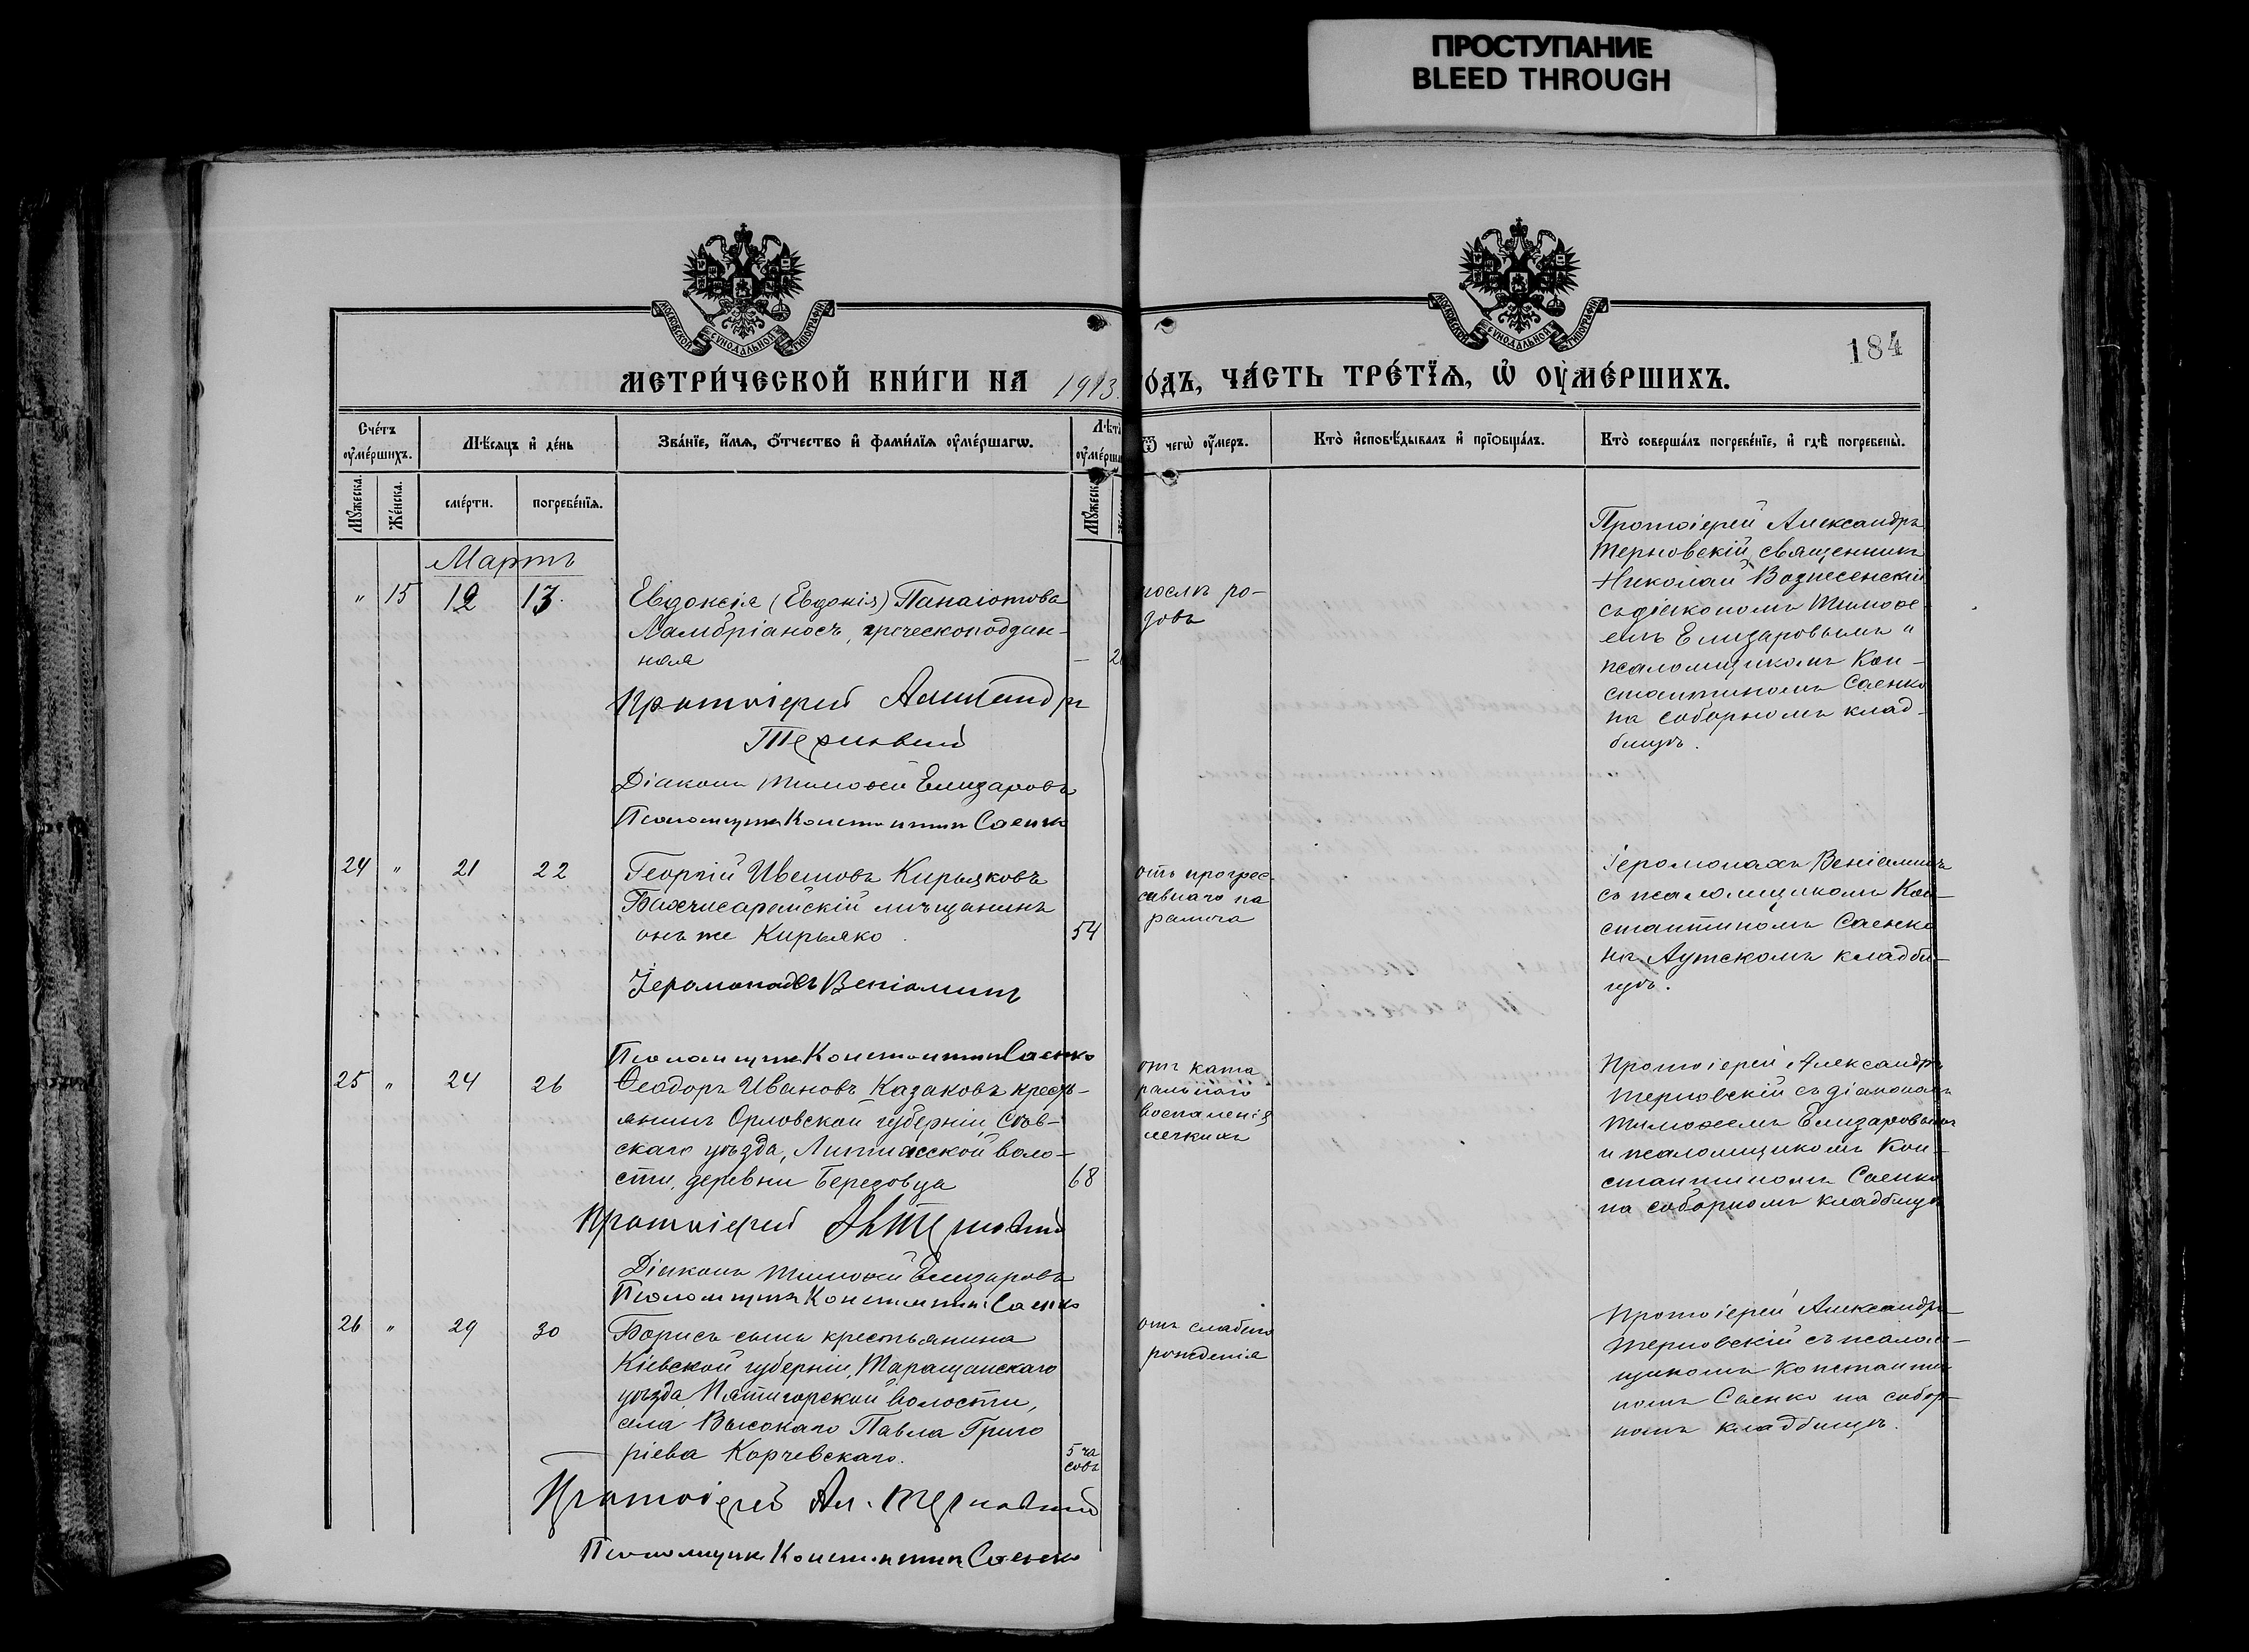 ПРОСТУПАНИЕ
BLEED THROUGH
МОСКОВСКОЙ СУНОДАЛЬНОЙ ТИПОГРАФІИ
МОСКОВСКОЙ СУНОДАЛЬНОЙ ТИПОГРАФІИ
184
МЕТРИ́ЧЕСКОЙ КНИ́ГИ НА 1913
ОДЪ, ЧА́СТЬ ТРЕ́ТЇѦ, Ѡ҆ ОУ҆МЕ́РШИХЪ.
Сче́тъ оу҆ме́ршихъ.
Мѣ́сѧцъ и҆ де́нь
Зва́нїе, и҆́мѧ, ѻ҆́тчество и҆ фами́лїѧ оу҆ме́ршагѡ.
Лѣ́т
оу҆ме́рша
Ѿ чегѡ̀ оу҆́меръ.
Кто̀ и҆сповѣ́дывалъ и҆ прїѻбща́лъ.
Кто̀ соверша́лъ погребе́нїе, и҆ гдѣ̀ погребены̀.
Мꙋ́жеска.
Же́нска.
сме́рти.
погребе́нїѧ.
Мꙋ́жеска
Мартъ
" 15 12 13
Евдоксія (Евдокія) Панаіотова
Ламбріаносъ, греческоподдан-
ная
Протоіерей Александръ
Терновскій
Діаконъ Тимоѳей Елизаровъ
Псаломщикъ Константинъ Саенко
послѣ ро-
довъ
Протоіерей Александръ
Терновскій, священникъ
Николай Вознесенскій
съ діакономъ Тимоѳе
емъ Елизаровымъ и
псаломщикомъ Кон-
стантиномъ Саенко
на соборномъ клад-
бищѣ.
24 " 21 22
Георгій Ивановъ Кирьяковъ
Бахчисарайскій мѣщанинъ
онъ же Кирьяко.
54
Іеромонахъ Веніаминъ
Псаломщикъ Константинъ Саенко
отъ прогрес-
сивнаго па
ралича
Іеромонахъ Веніаминъ
съ псаломщикомъ Кон-
стантиномъ Саенко
на Аутскомъ кладби-
щѣ.
25 " 24 26
Ѳеодоръ Ивановъ Казаковъ кресть-
янинъ Орловской губерніи, Сѣв-
скаго уѣзда,
воло-
сти, деревни Березовца
68
Протоіерей Ал. Терновскій
Діаконъ Тимоѳей Елизаровъ
Псаломщикъ Константинъ Саенко
отъ ката
ральнаго
воспаленія
легкихъ
Протоіерей Александръ
Терновскій съ діакономъ
Тимоѳеемъ Елизаровымъ
и псаломщикомъ Кон-
стантиномъ Саенко
на соборномъ кладбищѣ
26 " 29 30
Борисъ сынъ крестьянина
Кіевской губерніи, Таращанскаго
уѣзда, Пятигорской волости,
села Высокаго Павла Григо
ріева Корчевскаго.
5 ча
совъ
Протоіерей Ал. Терновскій
Псаломщикъ Константинъ Саенко
отъ слабаго
рожденія
Протоіерей Александръ
Терновскій съ псалом-
щикомъ Константи
номъ Саенко на собор-
номъ кладбищѣ.